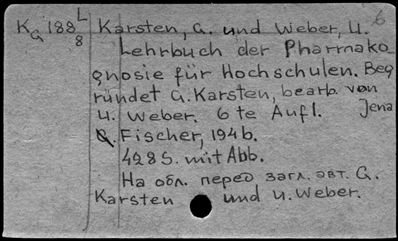 6
K G 188 L/8 Karsten, G. und Weber, U.
Lehrbuch der Pharmako
gnosie für Hochschulen. Beg
ründet G. Karsten, bearb. von
U. Weber. 6te Aufl. Jena
G. Fischer, 1946.
428 S. mit Abb.
На обл. перед загл. авт. G.
Karsten und U. Weber.